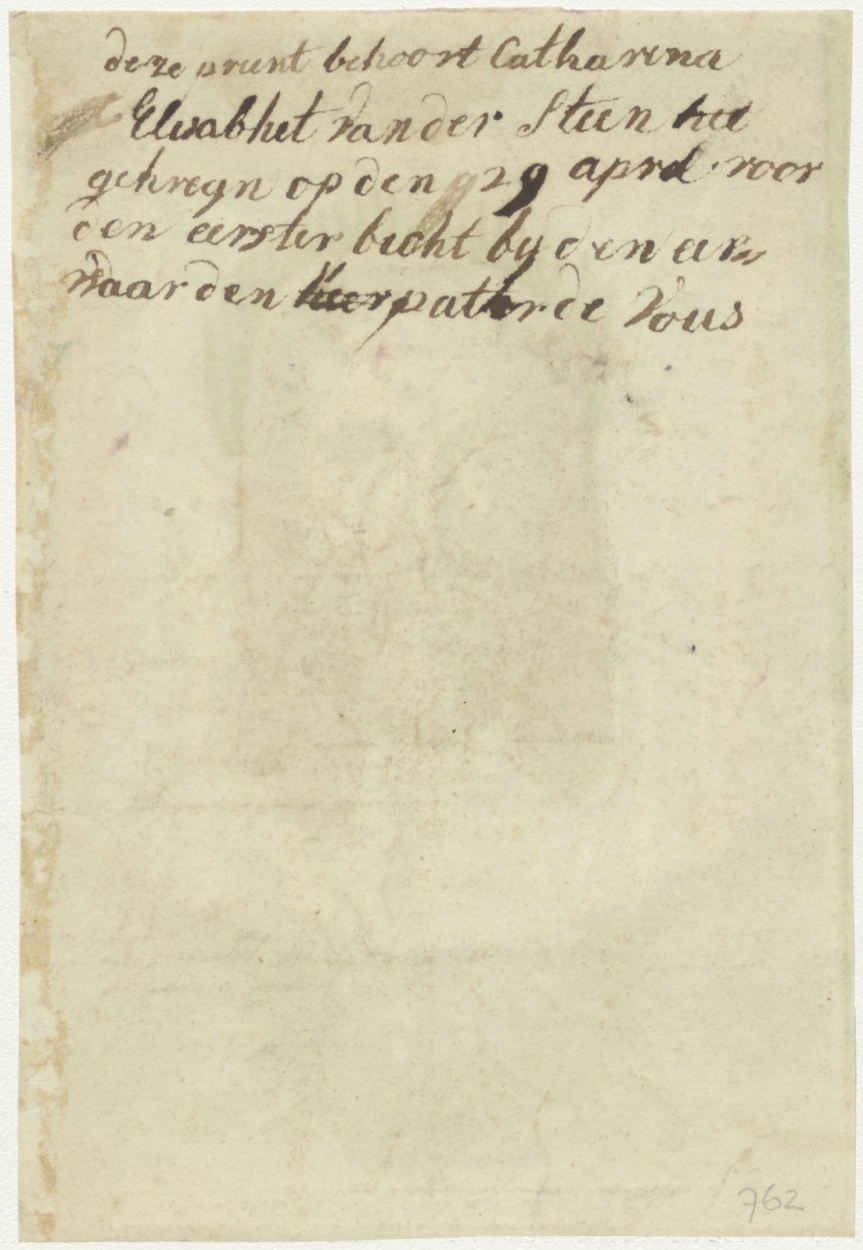 deze prent behoort Catharina
Elisabhet van der Steen het
gekregn op den 29 april voor
den eerster bicht bij den eer
waarden Heer pater de Vous
762